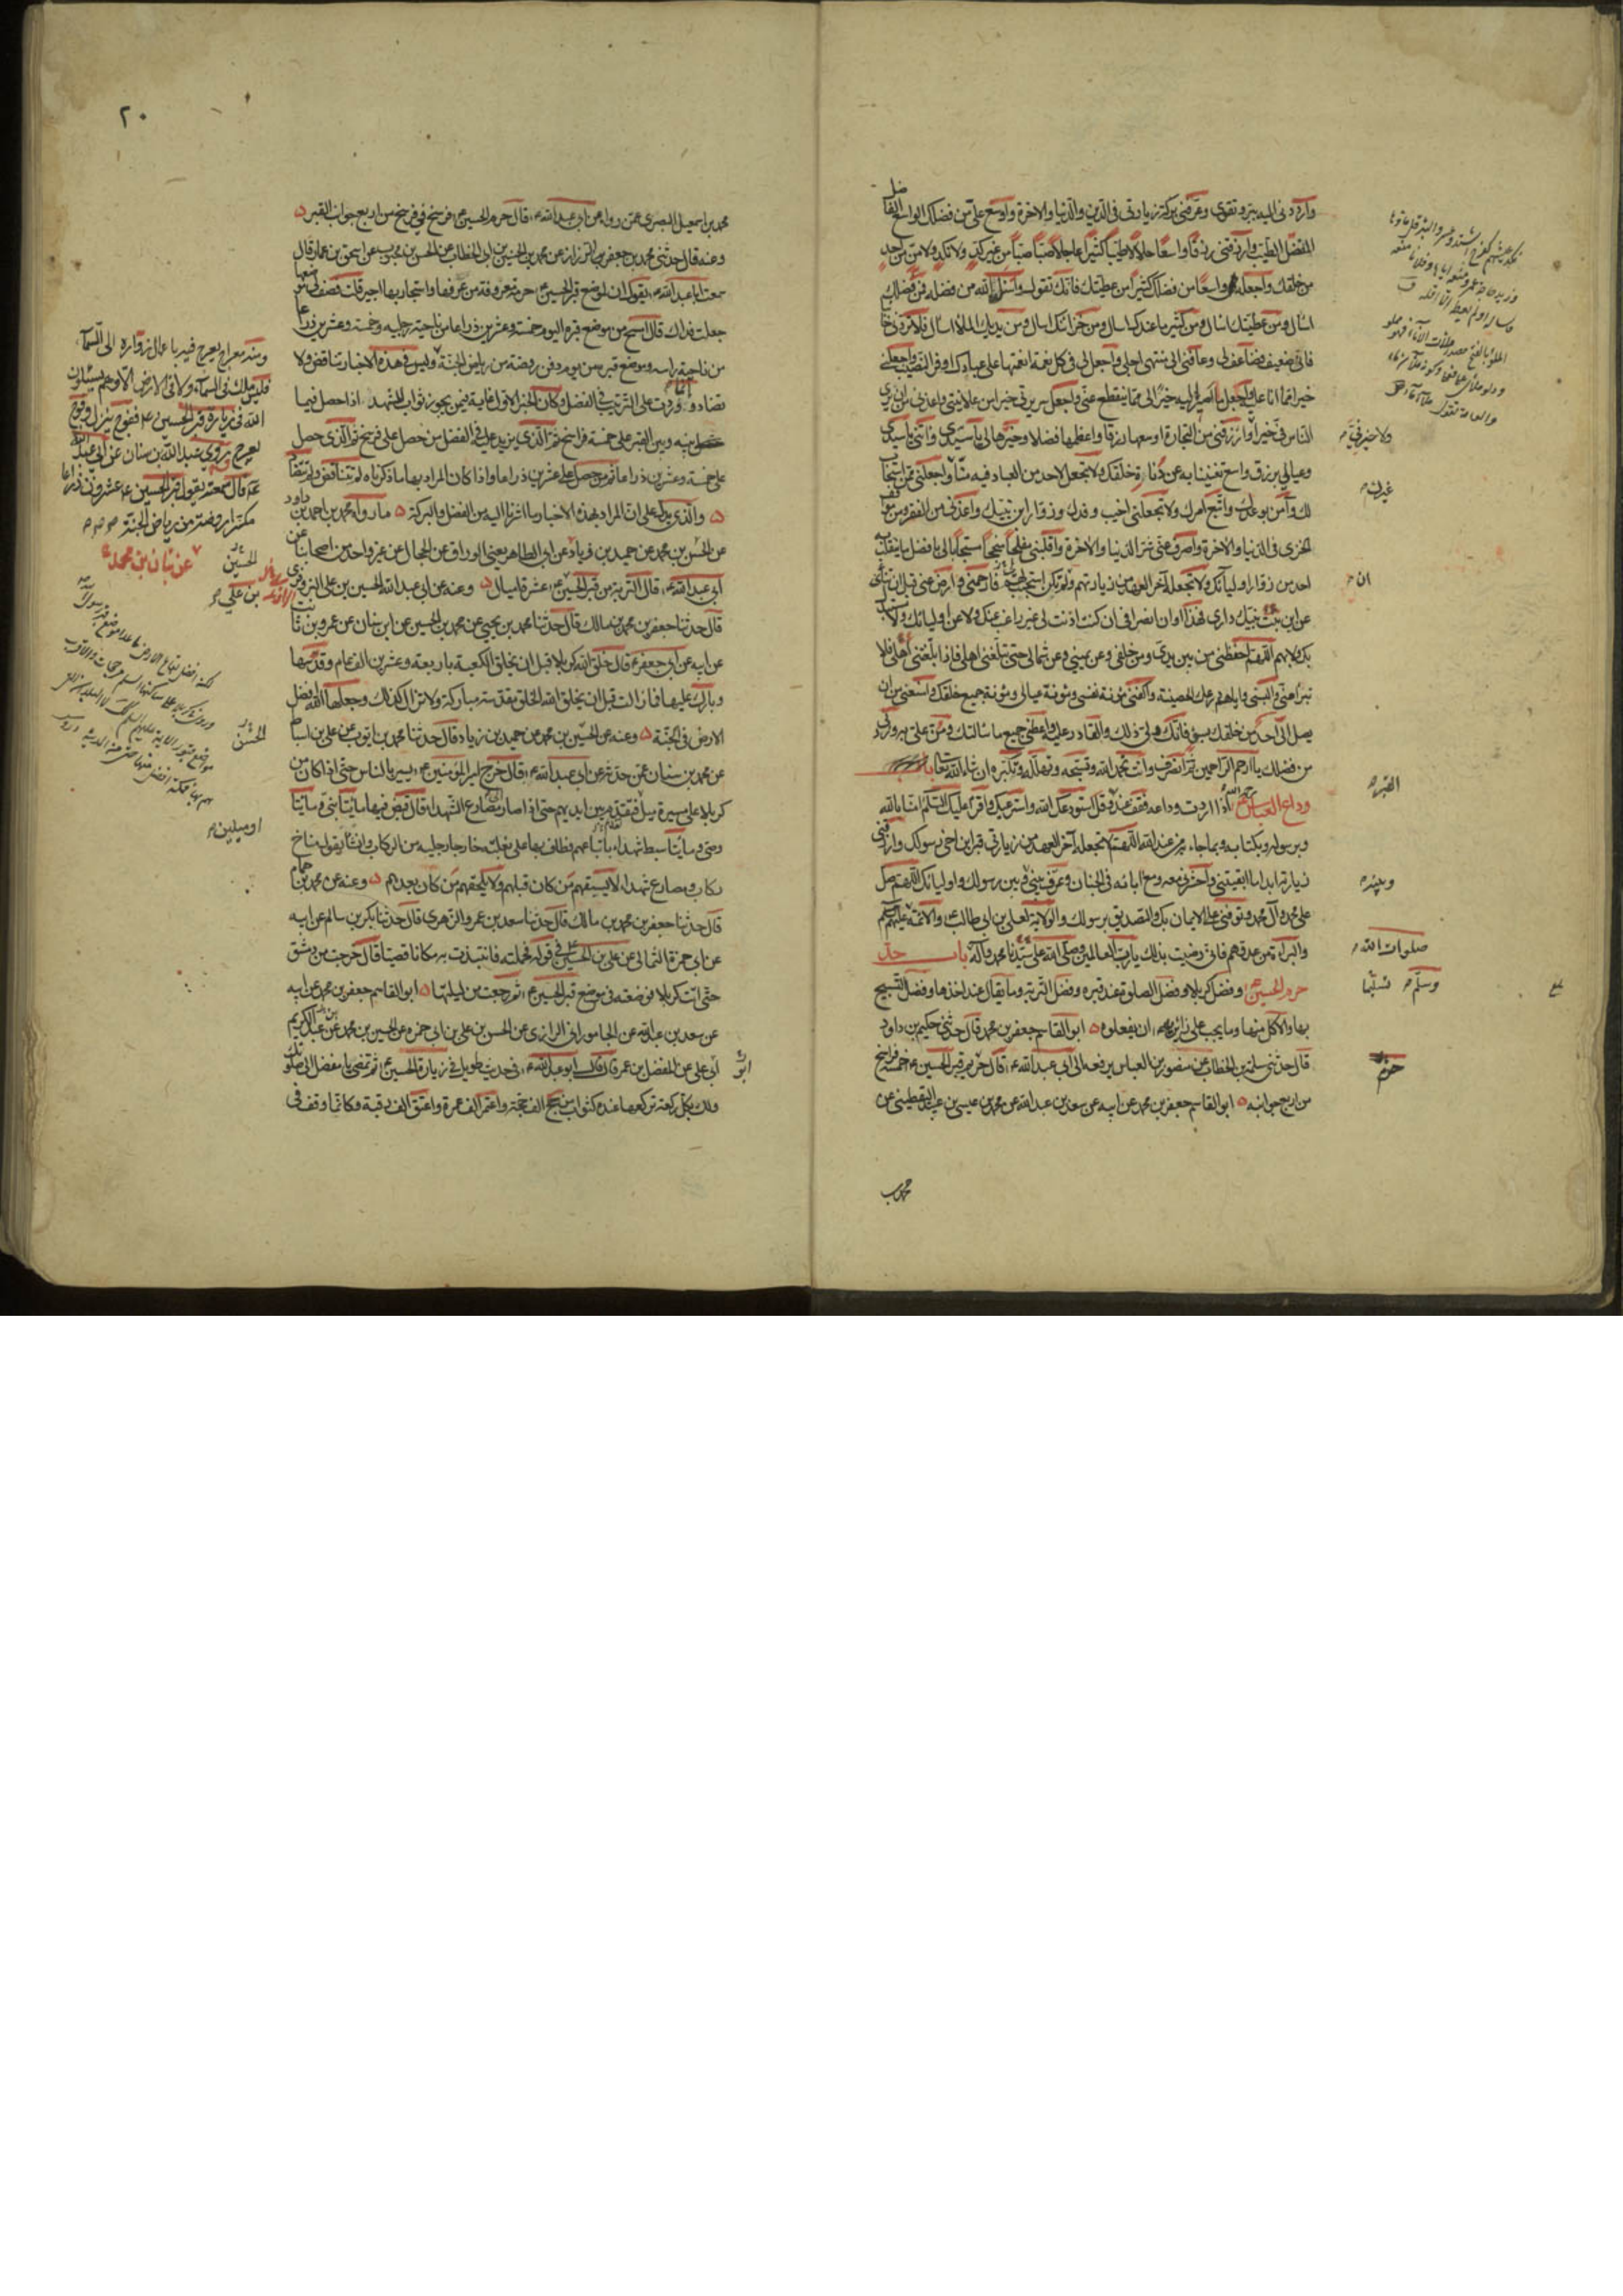 وارددني اليه ببر وتقوى وعرفني بركة زيارته في الدين والدنيا والآخرة واوسع علي من فضلك الواسع الفاضل
المفضل الطيب وارزقني رزقا واسعا حلالا طيبا كثيرا عاجلا صبا صبا من غير كد ولا نكد ولا من من احد
من خلقك واجعله واسعا من فضلك كثيرا من عطيتك فانك تقول واسئلوا الله من فضله فمن فضلك
اسال ومن عطيتك اسال ومن كثير ما عندك اسال ومن خزائنك اسال ومن يدك الملأ اسال فلا تردني خائبا
فاني ضعيف فضاعف لي وعافني الى منتهى اجلي واجعل لي في كل نعمة انعمتها على عبادك اوفر النصيب واجعلني
خيرا مما انا عليه واجعل ما اصير اليه خيرا لي مما ينقطع عني واجعل سريرتي خيرا من علانيتي واعذني من ان يرى
الناس في خيرا وارزقني من التجارة اوسعها رزقا واعظمها فضلا وخيرها لي يا سيدي واتني يا سيدي
وعيالي برزق واسع تغنينا به عن دناة خلقك ولا تجعل لاحد من العباد فيه منا واجعلني ممن استجاب
لك وآمن بوعدك واتبع امرك ولا تجعلني اخيب وفدك وزوار ابن نبيك واعذني من الفقر ومن مواقف
الخزي في الدنيا والآخرة واصرف عني شر الدنيا والآخرة واقلبني مفلحا منجحا مستجابا لي بافضل ما ينقلب به
احد من زوار اوليآئك ولا تجعله آخر العهد من زيارتهم ولو لم تكن استجبت فارحمني وارض عني قبل ان تنأى
عن ابن بنت نبيك داري فهذا اوان انصرافي ان كنت اذنت لي غير راغب عنك ولا عن اوليائك ولا مستبدل
بك ولا بهم اللهم احفظني من بين يدي ومن خلفي وعن يميني وعن شمالي حتى تبلغني اهلي فاذا بلغتني اهلي فلا
تبرأ مني والبسني واياهم درعك الحصينة واكفني مؤنة نفسي ومؤنة عيالي ومؤنة جميع خلقك وامنعني من ان
يصل الي احد من خلقك بسوء فانك ولي ذلك والقادر عليه واعطني جميع ما سالتك ومن علي به وزدني
من فضلك يا ارحم الراحمين ثم انصرف وانت تحمد الله وتسبحه وتهلله وتكبره ان شاء الله تعالى باب
وداع العباس رحمه الله اذا اردت وداعه فقف عنده وقل استودعك الله واسترعيك واقرأ عليك السلم آمنا بالله
وبرسوله وبكتابه وبما جاء به من عند الله اللهم لا تجعله آخر العهد من زيارتي قبر ابن اخي رسولك وارزقني
زيارته ابدا ما ابقيتني واحشرني معه ومع ابائه في الجنان وعرف بيني وبين رسولك واوليائك اللهم صل
على محمد وآل محمد وتوفني على الايمان بك والتصديق برسولك والولاية لعلي بن ابي طالب والائمة عليهم السلم
والبراءة من عدوهم فاني رضيت بذلك يا رب العالمين وصلى الله على سيدنا محمد وآله باب حد
حرم الحسين ع وفضل كربلا وفضل الصلوة عند قبره وفضل التربة وما يقال عند اخذها وفضل التسبيح
بها والاكل منها وما يجب على زائريه ع ان يفعلوه ابو القاسم جعفر بن محمد قال حدثني حكيم بن داود
قال حدثني سلمة بن الخطاب عن منصور بن العباس يرفعه الى ابي عبد الله ع قال حريم قبر الحسين ع خمسة فراسخ
من اربع جوانبه ابو القاسم جعفر بن محمد عن ابيه عن سعد بن عبد الله عن محمد بن عيسى بن عبيد اليقطيني عن
ولا خير في
غيرك
ان
القبر
وبينه
صلوات الله
وسلم تسليما
حرم
محمد بن
٢٠
محمد بن اسمعيل البصري عمن رواه عن ابي عبد الله ع قال حرم الحسين ع فرسخ في فرسخ من اربع جوانب القبر
وعنه قال حدثني محمد بن جعفر الرزاز عن محمد بن الحسين بن ابي الخطاب عن الحسن بن محبوب عن اسحق بن عمار قال
سمعت ابا عبد الله ع يقول ان لموضع قبر الحسين ع حرمة معروفة من عرفها واستجار بها اجير قلت فصف لي موضعها
جعلت فداك قال امسح من موضع قبره اليوم خمسة وعشرين ذراعا من ناحية رجليه وخمسة وعشرين ذراعا
من ناحية راسه وموضع قبره من يوم دفن روضة من رياض الجنة وليس في هذه الاخبار تناقض ولا
تضاد وانما وردت على الترتيب في الفضل وكان الخبر الاول غاية فيمن يجوز ثواب المشهد اذا حصل فيما
بينه وبين القبر على خمسة فراسخ ثم الذي يزيد عليه في الفضل من حصل على فرسخ ثم الذي حصل
على خمسة وعشرين ذراعا ثم من حصل على عشرين ذراعا واذا كان المراد بها ما ذكرناه لم تتناقض ولم تتضاد
والذي يدل على ان المراد بهذه الاخبار ما اشرنا اليه من الفضل والبركة ما رواه محمد بن احمد بن داود
عن الحسن بن محمد عن حميد بن زياد عن ابي الطاهر يعني الوراق عن الحجال عن غير واحد من اصحابنا عن
ابي عبد الله ع قال التربة من قبر الحسين ع عشرة اميال وعنه عن ابي عبد الله الحسين بن علي البزوفري
قال حدثنا جعفر بن محمد بن مالك قال حدثنا محمد بن يحيى عن محمد بن الحسين عن ابن سنان عن عمرو بن ثابت
عن ابيه عن ابي جعفر ع قال خلق الله كربلا قبل ان يخلق الكعبة باربعة وعشرين الف عام وقدسها
وبارك عليها فما زالت قبل ان يخلق الله الخلق مقدسة مباركة ولا تزال كذلك وجعلها الله افضل
الارض في الجنة وعنه عن الحسين بن محمد عن حميد بن زياد قال حدثنا محمد بن ايوب عن علي بن اسباط
عن محمد بن سنان عمن حدثه عن ابي عبد الله ع قال خرج امير المؤمنين ع يسير بالناس حتى اذا كان من
كربلا على مسيرة ميل فتقدم بين ايديهم حتى اذا صار بمصارع الشهداء قال قبض فيها مائتا نبي ومائتا
وصي ومائتا سبط شهداء باتباعهم فطاف بها على بغلته خارجا رجليه من الركاب وانشأ يقول مناخ
ركاب ومصارع شهداء لا يسبقهم من كان قبلهم ولا يلحقهم من كان بعدهم وعنه عن محمد بن همام
قال حدثنا جعفر بن محمد بن مالك قال حدثنا سعد بن عمرو الزهري قال حدثنا بكر بن سالم عن ابيه
عن ابي حمزة الثمالي عن علي بن الحسين ع في قوله فحملته فانتبذت به مكانا قصيا قال خرجت من دمشق
حتى اتت كربلا فوضعته في موضع قبر الحسين ع ثم رجعت من ليلتها ابو القاسم جعفر بن محمد عن ابيه
عن سعد بن عبد الله عن الجاموراني الرازي عن الحسن بن علي بن ابي حمزة عن الحسن بن محمد بن عبد الكريم
ابي علي عن المفضل بن عمر قال قال ابو عبد الله ع في حديث طويل في زيارة الحسين ع ثم تمضي يا مفضل الى صلوتك
ولك بكل ركعة تركعها عنده كثواب من حج الف حجة واعتمر الف عمرة واعتق الف رقبة وكانما وقف في
ومنه معراج يعرج فيه باعمال زواره الى السمآء
فليس ملك في السمآء ولا في الارض الا وهم يسئلون
الله في زيارة قبر الحسين ع ففوج ينزل وفوج
يعرج وروى عبد الله بن سنان عن ابي عبد الله
ع قال سمعته يقول قبر الحسين ع عشرون ذراعا
مكسرا روضة من رياض الجنة
عن بنان بن محمد
الحسين
بن علي
الحسن
او ميلين
ابو